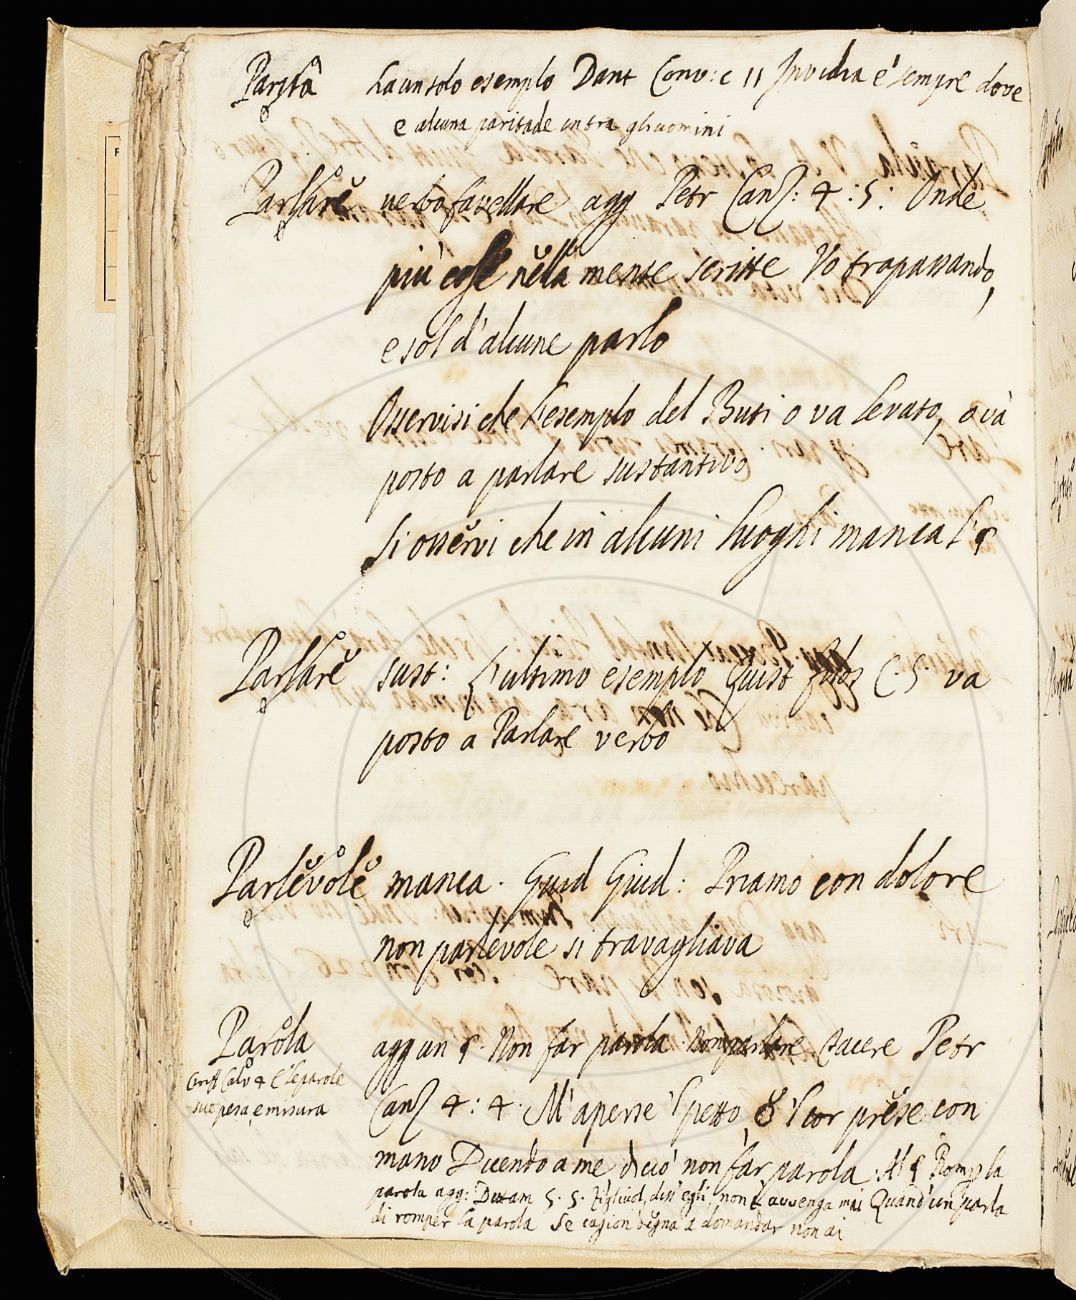 Parità ha un solo esemplo Dant Conv: c 11 Invidia è sempre dove
e alcuna paritade intra gli uomini
Parlare verbo favellare agg Petr Canz: 4: 5: Onde
più cose nella mente scritte Vo trapassando,
e sol d'alcune parlo
Osservisi che l'esemplo del Buti o va levato, o và
posto a parlare sustantivo
Si osservi che in alcuni luoghi manca l' §
Parlare sust: L'ultimo esemplo Guist C. 5 va
posto a Parlare verbo
Parlevole manca. Guid Giud: Priamo con dolore
non parlevole si travagliava
Parola agg un §. Non far parola Non parlare Tacere Petr
Canz 4: 4. M'aperse 'l petto, e 'l cor prese con
Calv 4 E le parole
sue pesa e misura
mano Dicendo a me di ciò non far parola. Al § Romper la
parola agg: Dittam 5. 5. Figliuol, diss'egli, non t'avvenga mai Quand'un parla
di romper la parola Se cagion degna a domandar non ai